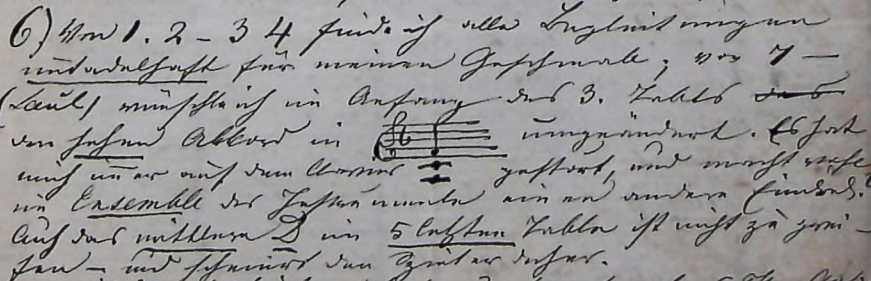 6) Von 1. 2 – 3 4 finde ich alle Begleitungen
untadelhaft für meinen Geschmak; vor 7 –
(Laul) wünschte ich im Anfang des 3. Takts des
den hohen Akkord in umgeändert. Es hat
mich immer auf dem Clavier gestört, und macht wohl
im Ensemble der Instrumente einen andern Eindruk.
Auch das mittlere D im 5 letzten Takte ist nicht zu grei-
fen – und scheint's den Spieler daher.